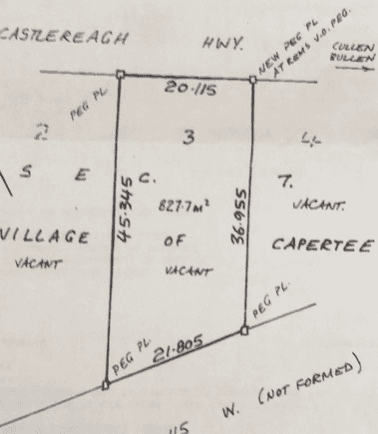 CASTLEREAGH HWY.
NEW PEG PL
AT REMS V.O. PEG.
CULLEN
BULLEN
PEG PL
20·115
2 3 4
S E C. 7.
827.7m²
VACANT.
45·345
36·955
VILLAGE OF CAPERTEE
VACANT
VACANT
PEG PL.
PEG PL.
21·805
W. (NOT FORMED)